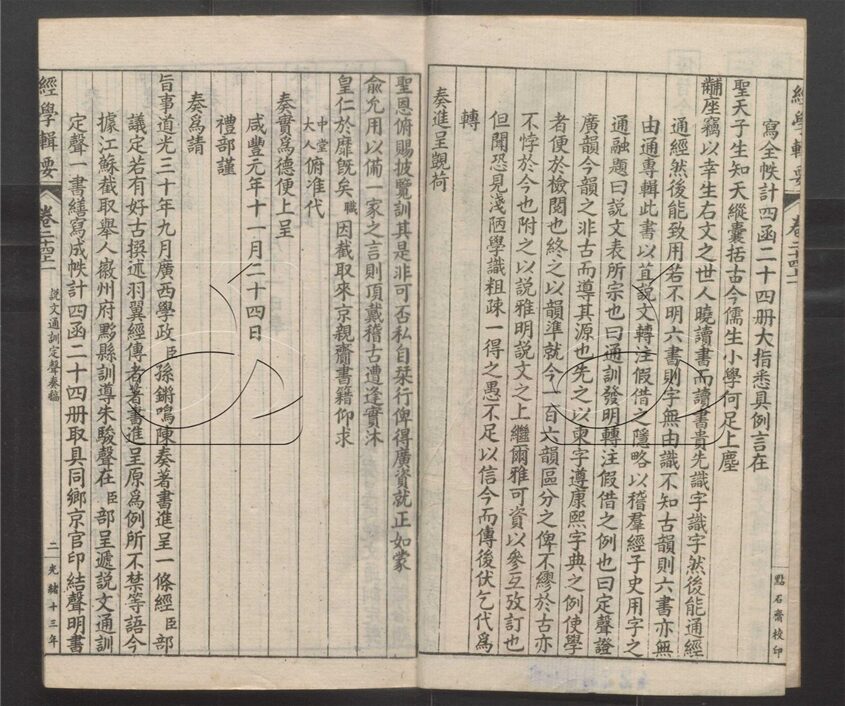 經學輯要
卷二十四上
點石齋校印
寫全帙計四函二十四册大指悉具例言在
聖天子生知天縱囊括古今儒生小學何足上塵
黼座竊以幸生右文之世人曉讀書而讀書貴先識字識字然後能通經
通經然後能致用若不明六書則字無由識不知古韻則六書亦無
由通專輯此書以苴說文轉注假借之隱略以稽羣經子史用字之
通融題曰說文表所宗也曰通訓發明轉注假借之例也曰定聲證
廣韻今韻之非古而導其源也先之以柬字遵康熙字典之例使學
者便於檢閱也終之以韻準就今一百六韻區分之俾不繆於古亦
不悖於今也附之以說雅明說文之上繼爾雅可資以參互攷訂也
但聞恐見淺陋學識粗疎一得之愚不足以信今而傳後伏乞代爲
轉
奏進呈觀荷
聖恩俯賜披覽訓其是非可否私自栞行俾得廣資就正如蒙
俞允用以備一家之言則頂戴稽古遭逢實沐
皇仁於靡既矣職因截取來京親齎書籍仰求
中堂大人俯准代
奏實爲德便上呈
咸豐元年十一月二十四日
禮部謹
奏爲請
旨事道光三十年九月廣西學政臣孫鏘鳴陳奏著書進呈一條經臣部
議定若有好古撰述羽翼經傳者著書進呈原爲例所不禁等語今
據江蘇截取舉人徽州府黟縣訓導朱駿聲在臣部呈遞說文通訓
定聲一書繕寫成帙計四函二十四册取具同鄉京官印結聲明書
經學輯要
說文通訓定聲奏稿
二
光緒十三年